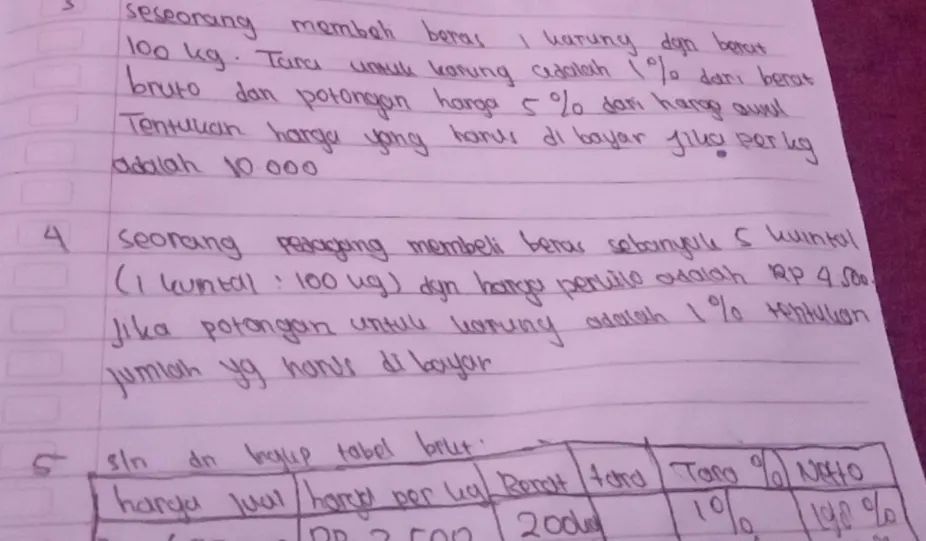 3 seseorang membeli beras 1 karung dgn berat
100 kg. Tara untuk karung adalah 1% dari berat
bruto dan potongan harga 5% dari harga awal
Tentukan harga yang harus di bayar jika per kg
adalah 10.000
4 seorang pedagang membeli beras sebanyak 5 kuintal
(1 kuntal : 100 kg) dgn harga perkilo adalah Rp 4.500.
Jika potongan untuk karung adalah 1% tentukan
jumlah yg harus di bayar
5 sln dn tabel brut.
harga jual harga per kg Berat tara Tara % Netto
RP 2.500 200kg 1% 198%